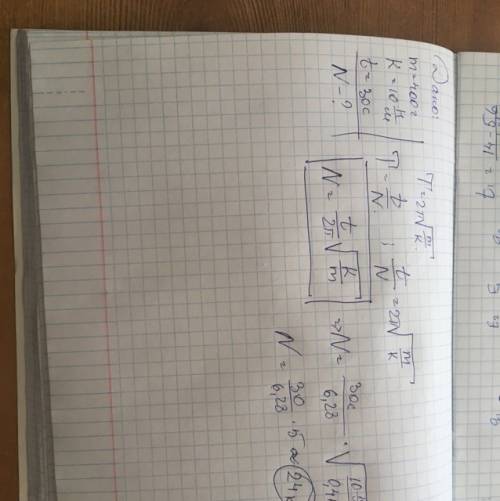 Дано:
m=400г
k=10 Н/м
t=30с
N-?
T=2π√(m/k)
T=t/N ; t/N=2π√(m/k)
N=t/2π √(k/m) ⇒ N=30с/6,28 ·√(10
N=30/6,28 ·5≈24